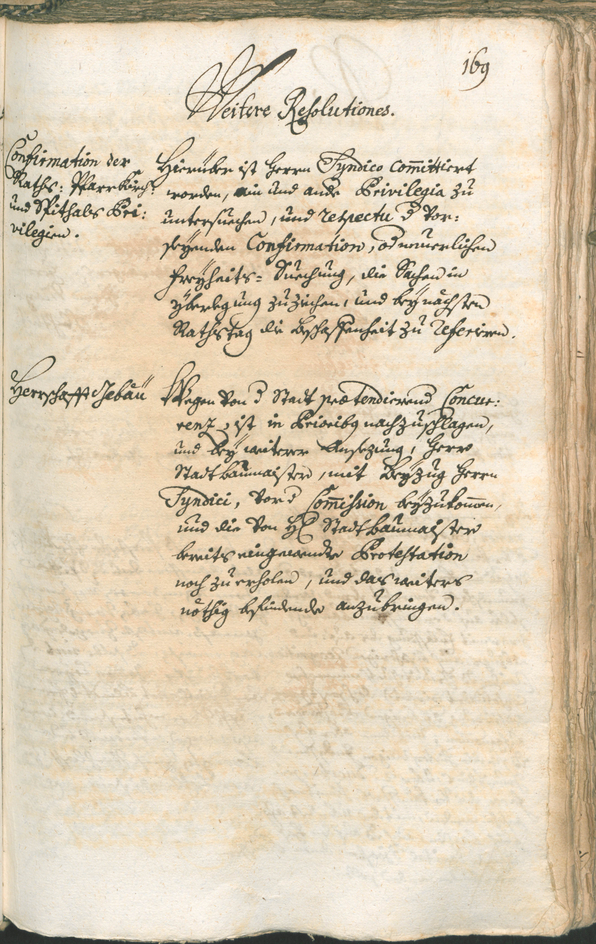 169
Weitere Resolutiones.
Confirmation der
Raths: Pfarrkirch:
und Spithals Pri:
vilegien.
Hierüber ist Herrn Syndico committiert
worden, ain und andere Privilegia zu
untersuechen, und respectu d vor:
seyenden Confirmation, od neuerlichen
Freyheits-Suechung, die Sachen in
yberlegung zuziechen, und bey nächsten
Rathstag die Beschaffenheit zu referiren.
Herrschafft Gebäu
Wegen von d Stadt prætendierend Concur:
renz, ist in Prioribq nachzuschlagen,
und bey weiterer Ansezung, Herr
Stadtbaumaister, mit Beyzug Herrn
Syndici, vor d Commission beyzukommen,
und die von H Stadtbaumaister
bereits eingewendte Protestation
noch zu erholen, und das weiters
nöthig befindende anzubringen.